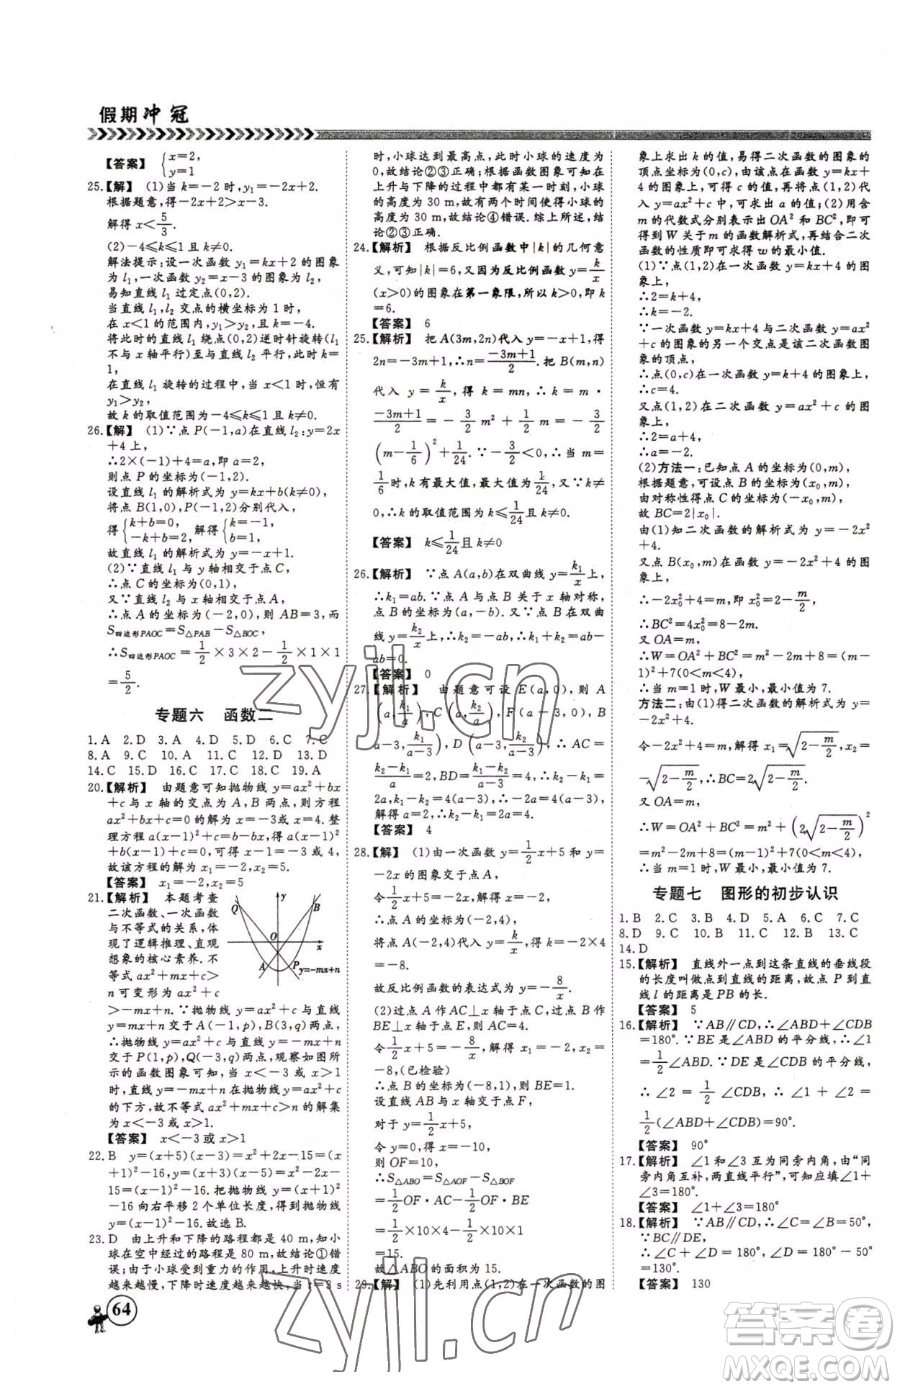 假期冲冠
【答案】 {x=2, y=1
25.【解】 (1)当 k=-2 时,y₁=-2x+2.
根据题意,得-2x+2>x-3.
解得 x<5/3.
(2)-4≤k≤1 且 k≠0.
解法提示:设一次函数 y₁=kx+2 的图象为直线 l₁,一次函数 y₂=x-3 的图象为 l₂.
易知直线 l₁ 过定点(0,2).
当直线 l₁ 与直线 l₂ 的交点的横坐标为 1 时,
在 x<1 的范围内,y₁>y₂,此时 k=-4.
将此时的直线 l₁ 绕点(0,2)逆时针旋转(其间不与 x 轴平行)至与直线 l₂ 平行,此时 k=1,
在直线 l₁ 旋转的过程中,当 x<1 时,恒有 y₁>y₂.
故 k 的取值范围为-4≤k≤1 且 k≠0.
26.【解】 (1)∵点 P(-1,a)在直线 l₂:y=2x+4 上,
∴2×(-1)+4=a,即 a=2,
则点 P 的坐标为(-1,2).
设直线 l₁ 的解析式为 y=kx+b(k≠0),
将点 B(1,0),P(-1,2)分别代入,
得{k+b=0, -k+b=2, 解得{k=-1, b=1.
故直线 l₁ 的解析式为 y=-x+1.
(2)∵直线 l₁ 与 y 轴相交于点 C,
∴点 C 的坐标为(0,1).
又∵直线 l₂ 与 x 轴相交于点 A,
∴点 A 的坐标为(-2,0),则 AB=3.
而 S四边形PAOC=S△PAB-S△BOC,
∴S四边形PAOC=1/2×3×2-1/2×1×1
=5/2.
专题六 函数二
1.C 2.D 3.A 4.D 5.D 6.C 7.C
8.A 9.C 10.A 11.C 12.D 13.D
14.C 15.D 16.C 17.C 18.C 19.A
20.【解析】 由题意可知抛物线 y=ax²+bx+c 与 x 轴的交点为 A,B 两点,则方程 ax²+bx+c=0 的解为 x=-3 或 x=4. 整理方程 a(x-1)²+c=b-bx,得 a(x-1)²+b(x-1)+c=0,则 x-1=-3 或 x-1=4,
故该方程的解为 x₁=-2,x₂=5.
【答案】 x₁=-2,x₂=5
21.【解析】 本题考查二次函数、一次函数与不等式的关系,体现了逻辑推理、直观想象的核心素养.
不等式 ax²+mx+c>n 可变形为 ax²+c
>-mx+n. ∵抛物线 y=ax²+c 与直线 y=mx+n 交于 A(-1,p),B(3,q)两点,
∴抛物线 y=ax²+c 与直线 y=-mx+n 交于 P(1,p),Q(-3,q)两点,观察如图的函数图象可知:当 x<-3 或 x>1 时,直线 y=-mx+n 在抛物线 y=ax²+c 的下方,故不等式 ax²+mx+c>n 的解集为 x<-3 或 x>1.
【答案】 x<-3 或 x>1
22.B y=(x+5)(x-3)=x²+2x-15=(x+1)²-16,y=(x+3)(x-5)=x²-2x-15=(x-1)²-16,把抛物线 y=(x+1)²-16 向右平移 2 个单位后,得抛物线 y=(x-1)²-16. 故选 B.
23.D 由上升和下降的路程都是 40 m,知小球在空中经过的路程是 80 m,故结论①错误;由于受到重力的作用,上升时速度越来越慢,下降时速度越来越快,当 t=3 s
64
时,小球达到最高点,此时小球的速度为 0,故结论②③正确;根据函数图象可知小球上升与下降的过程中都有某一时刻,小球的高度为 30 m,故有两个时间使小球的高度为 30 m,故结论④错误. 综上所述,结论②③正确.
24.【解析】 根据反比例函数中|k|的几何意义,可知|k|=6,又因为反比例函数 y=k/x (x>0)的图象在第一象限,所以 k>0,即 k=6.
【答案】 6
25.【解析】 把 A(3m,2n)代入 y=-x+1,得 2n=-3m+1,∴n=(-3m+1)/2. 把 B(m,n)代入 y=k/x,得 k=mn,∴k=m·(-3m+1)/2=-3/2m²+1/2m=-3/2(m-1/6)²+1/24. ∵-3/2<0,∴当 m=1/6时,k 有最大值,最大值为1/24. ∵k≠0,
∴k 的取值范围为 k≤1/24且 k≠0.
【答案】 k≤1/24且 k≠0
26.【解析】 ∵点 A(a,b)在双曲线 y=k₁/x上,∴k₁=ab. ∵点 A 与点 B 关于 x 轴对称,∴点 B 的坐标为(a,-b). ∵点 B 在双曲线 y=k₂/x上,∴k₂=-ab,∴k₁+k₂=ab-ab=0.
【答案】 0
27.【解析】 由题意可设 E(a,0),则 A(a,k₁/a),C(a,k₂/a),F(a-3,0),B(a-3,k₁/(a-3)),D(a-3,k₂/(a-3)),∴AC=(k₁-k₂)/a=2,BD=(k₂-k₁)/(a-3)=4,∴k₁-k₂=2a,k₂-k₁=4(a-3),∴-2a=4(a-3),解得 a=2,∴k₁-k₂=2a=4.
【答案】 4
28.【解】 (1)由一次函数 y=1/2x+5 和 y=-2x 的图象交于点 A,
∴点 A 的坐标为(-2,4),
将点 A(-2,4)代入 y=k/x,得 k=-2×4=-8.
故反比例函数的解析式为 y=-8/x.
(2)过点 A 作 AC⊥x 轴于点 C,过点 B 作 BE⊥x 轴于点 E,
令1/2x+5=-8/x,解得 x₁=-2,x₂=-8,(已检验)
∴点 B 的坐标为(-8,1),则 BE=1.
设直线 AB 与 x 轴交于点 F,
对于 y=1/2x+5,
令 y=0,解得 x=-10,
则 OF=10,
∴S△ABO=S△AOF-S△BOF
=1/2OF·AC-1/2OF·BE
=1/2×10×4-1/2×10×1
=15.
故△ABO 的面积为 15.
29.【解】 (1)先利用点(1,2)在一次函数的图
象上求出 k 的值,易得二次函数的图象的顶点坐标为(0,4),再根据一次函数 y=kx+4 可求得 c 的值,再将点(1,2)代入 y=ax²+c 中,可求出 a 的值;(2)用含 m 的代数式分别表示出 OA² 和 BC²,即可得到 W 关于 m 的函数解析式,再结合二次函数的性质可求得 w 的最小值.
(1)∵点(1,2)在一次函数 y=kx+4 的图象上,
∴2=k+4,
∴k=-2.
∵一次函数 y=kx+4 与二次函数 y=ax²+c 的图象的另一个交点是该二次函数图象的顶点,
∴点(0,c)在一次函数 y=kx+4 的图象上,
∴c=4.
又∵点(1,2)在二次函数 y=ax²+c(a≠0)的图象上,
∴2=a+c,
∴a=-2.
(2)方法一:已知点 A 的坐标为(0,m),
根据题意,可设点 C 的坐标为(x₀,m),
由对称性得点 B 的坐标为(-x₀,m),
故 BC=2|x₀|.
由(1)知二次函数的解析式为 y=-2x²+4.
又∵点 C 在二次函数 y=-2x²+4 的图象上,
∴-2x₀²+4=m,即 x₀²=2-m/2,
∴BC²=4x₀²=8-2m.
又 OA=m,
∴W=OA²+BC²=m²-2m+8=(m-1)²+7(0<m<4).
∴当 m=1 时,W 最小,最小值为 7.
方法二:由(1)得二次函数的解析式为 y=-2x²+4.
令-2x²+4=m,解得 x₁=√(2-m/2),x₂=-√(2-m/2),∴BC=2√(2-m/2).
又 OA=m,
∴W=OA²+BC²=m²+(2√(2-m/2))²=m²-2m+8=(m-1)²+7(0<m<4).
∴当 m=1 时,W 最小,最小值为 7.
专题七 图形的初步认识
1.B 2.C 3.B 4.D 5.A 6.C 7.C
8.D 9.C 10.B 11.C 12.B 13.C
14.D
15.【解析】 直线外一点到这条直线的垂线段的长度叫做点到直线的距离,故点 P 到直线 l 的距离是 PB 的长.
【答案】 5
16.【解析】 ∵AB∥CD,∴∠ABD+∠CDB=180°. ∵BE 是∠ABD 的平分线,∴∠1=1/2∠ABD. ∵DE 是∠CDB 的平分线,∴∠2=1/2∠CDB,∴∠1+∠2=1/2(∠ABD+∠CDB)=90°.
【答案】 90°
17.【解析】 ∠1 和∠3 互为同旁内角,由“同旁内角互补,两直线平行”,可知应填∠1+∠3=180°.
【答案】 ∠1+∠3=180°
18.【解析】 ∵AB∥CD,∴∠C=∠B=50°. ∵BC∥DE,∴∠D=180°-∠C=180°-50°=130°.
【答案】 130
zyjl.cn
zyjl.cn
答案圈
MXQE.COM